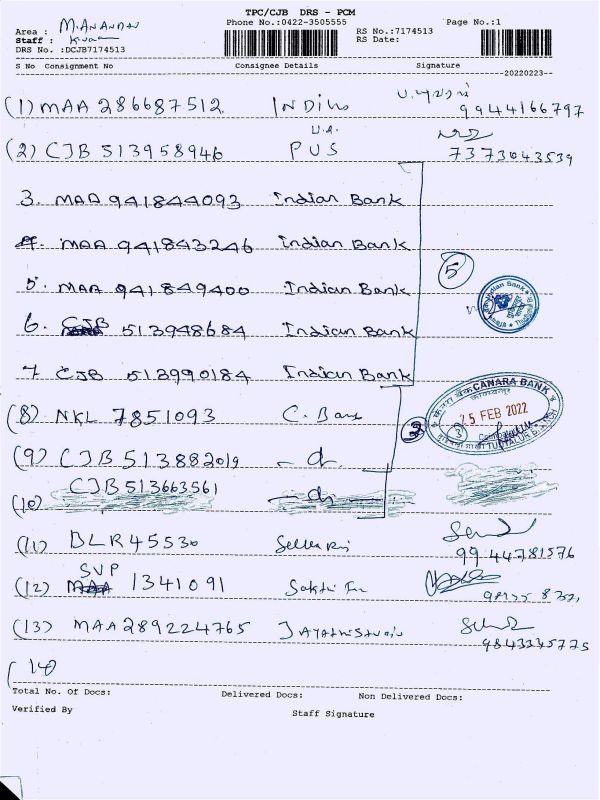 TPC/CJB DRS - PCM
Phone No.:0422-3505555
Page No.:1
Area : M.ANANDAN
Staff : Kumar
RS No.:7174513
DRS No. :DCJB7174513
RS Date:
S No Consignment No Consignee Details Signature
20220223--
(1) MAA 286687512
9944166797
(2) CJB 513958946 PUS
7373043539
3. MAA 941844093 Indian Bank
4. MAA 941843246 Indian Bank
5. MAA 941849400 Indian Bank
(5)
6. CJB 513948684 Indian Bank
7 CJB 513990184 Indian Bank
CANARA BANK
25 FEB 2022
(8) NKL 7851093 C. Bank
(3)
(9) CJB 513882019
(10) CJB 513663561
(11) BLR 45530
9944781576
(12) SVP 1341091
(13) MAA 289224765
9843235775
(14)
Total No. Of Docs: Delivered Docs: Non Delivered Docs:
Verified By
Staff Signature